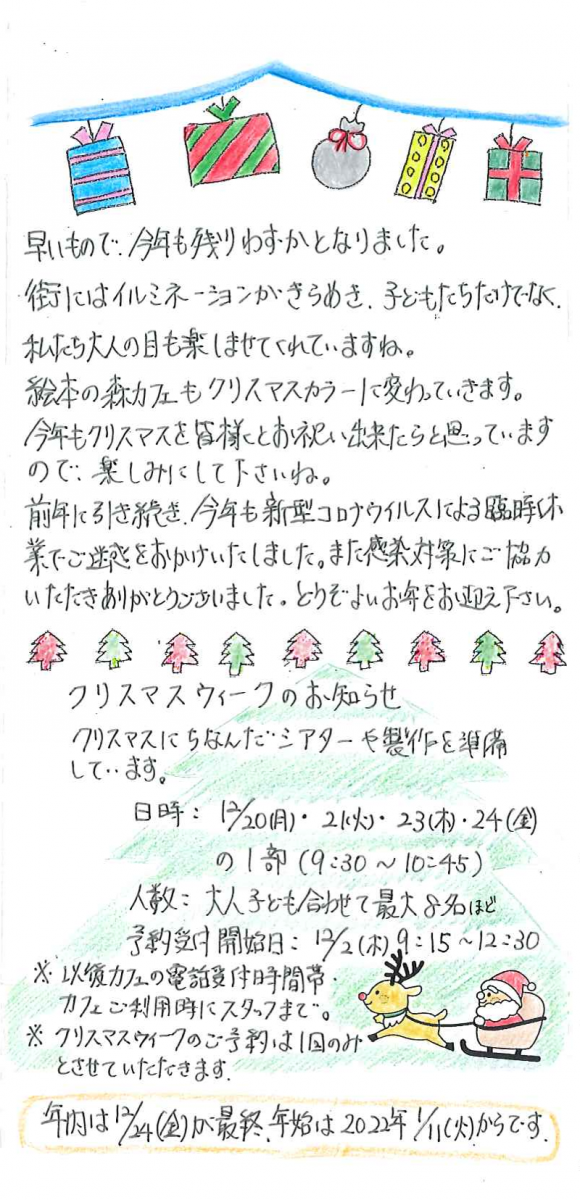 早いもので、今年も残りわずかとなりました。
街にはイルミネーションがきらめき、子どもたちだけでなく、
私たち大人の目も楽しませてくれていますね。
絵本の森カフェもクリスマスカラーに変わっていきます。
今年もクリスマスを皆様とお祝い出来たらと思っています
ので、楽しみにして下さいね。
前年に引き続き、今年も新型コロナウイルスによる臨時休
業でご迷惑をおかけいたしました。また感染対策にご協力
いただきありがとうございました。どうぞよいお年をお迎え下さい。
クリスマスウィークのお知らせ
クリスマスにちなんだシアターや製作を準備
しています。
日時： 12/20(月)・21(火)・23(木)・24(金)
の1部 (9:30～10:45)
人数： 大人子ども合わせて最大8名ほど
予約受付開始日： 12/2(木) 9:15～12:30
※ 以後カフェの電話受付時間帯・
カフェご利用時にスタッフまで。
※ クリスマスウィークのご予約は1回のみ
とさせていただきます。
年内は12/24(金)が最終、年始は2022年1/11(火)からです。